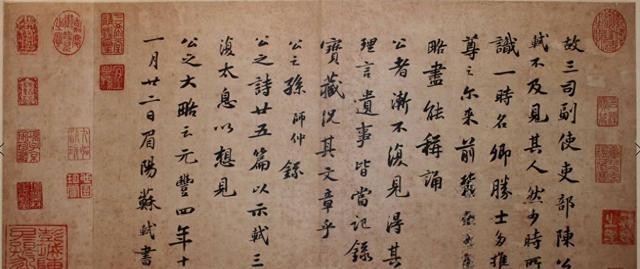 故三司副使吏部陳公
軾不及見其人然少時所
識一時名卿勝士多推
尊之尔来前輩
略盡能稱誦
公者漸不復見得其
理言遺事皆當記錄
寶藏況其文章乎
公之孫師仲錄
公之詩廿五篇以示軾三
復太息以想見
公之大略云元豐四年十
一月廿二日眉陽蘇軾書